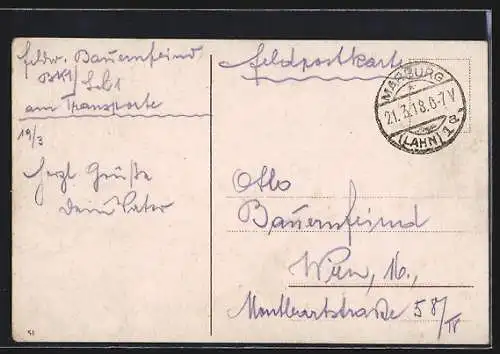 Feldw. Bauernfeind
am Transporte
19/3
Herzl. Grüße
Dein Vater
51
Feldpostkarte
MARBURG
21.3.18.6-7V
(LAHN) 1a
Otto
Bauernfeind
Wien, 16.,
Montleartstraße 58/IV